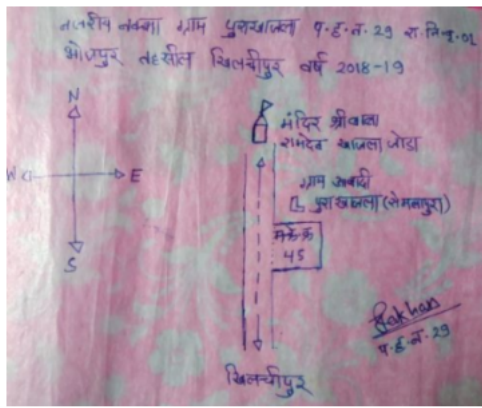 नजरीय नक्शा ग्राम पुराखाजला प.ह.न. 29 रा.नि.वृ.01
भोजपुर तहसील खिलचीपुर वर्ष 2018-19
N
मंदिर श्रीबाबा
रामदेव खाजला जोडा
W
E
ग्राम आबादी
पुराखाजला (सेमलापुरा)
S
45
खिलचीपुर
Lakhan
प.ह.न. 29